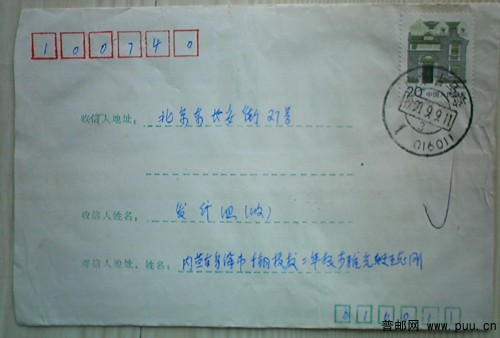 100740
20 中国
1991.9.9.11
016011
收信人地址: 北京东长安街27号
收信人姓名: 发行组(收)
寄信人地址、姓名: 内蒙古乌海市
016011
普邮网 www.puu.cn